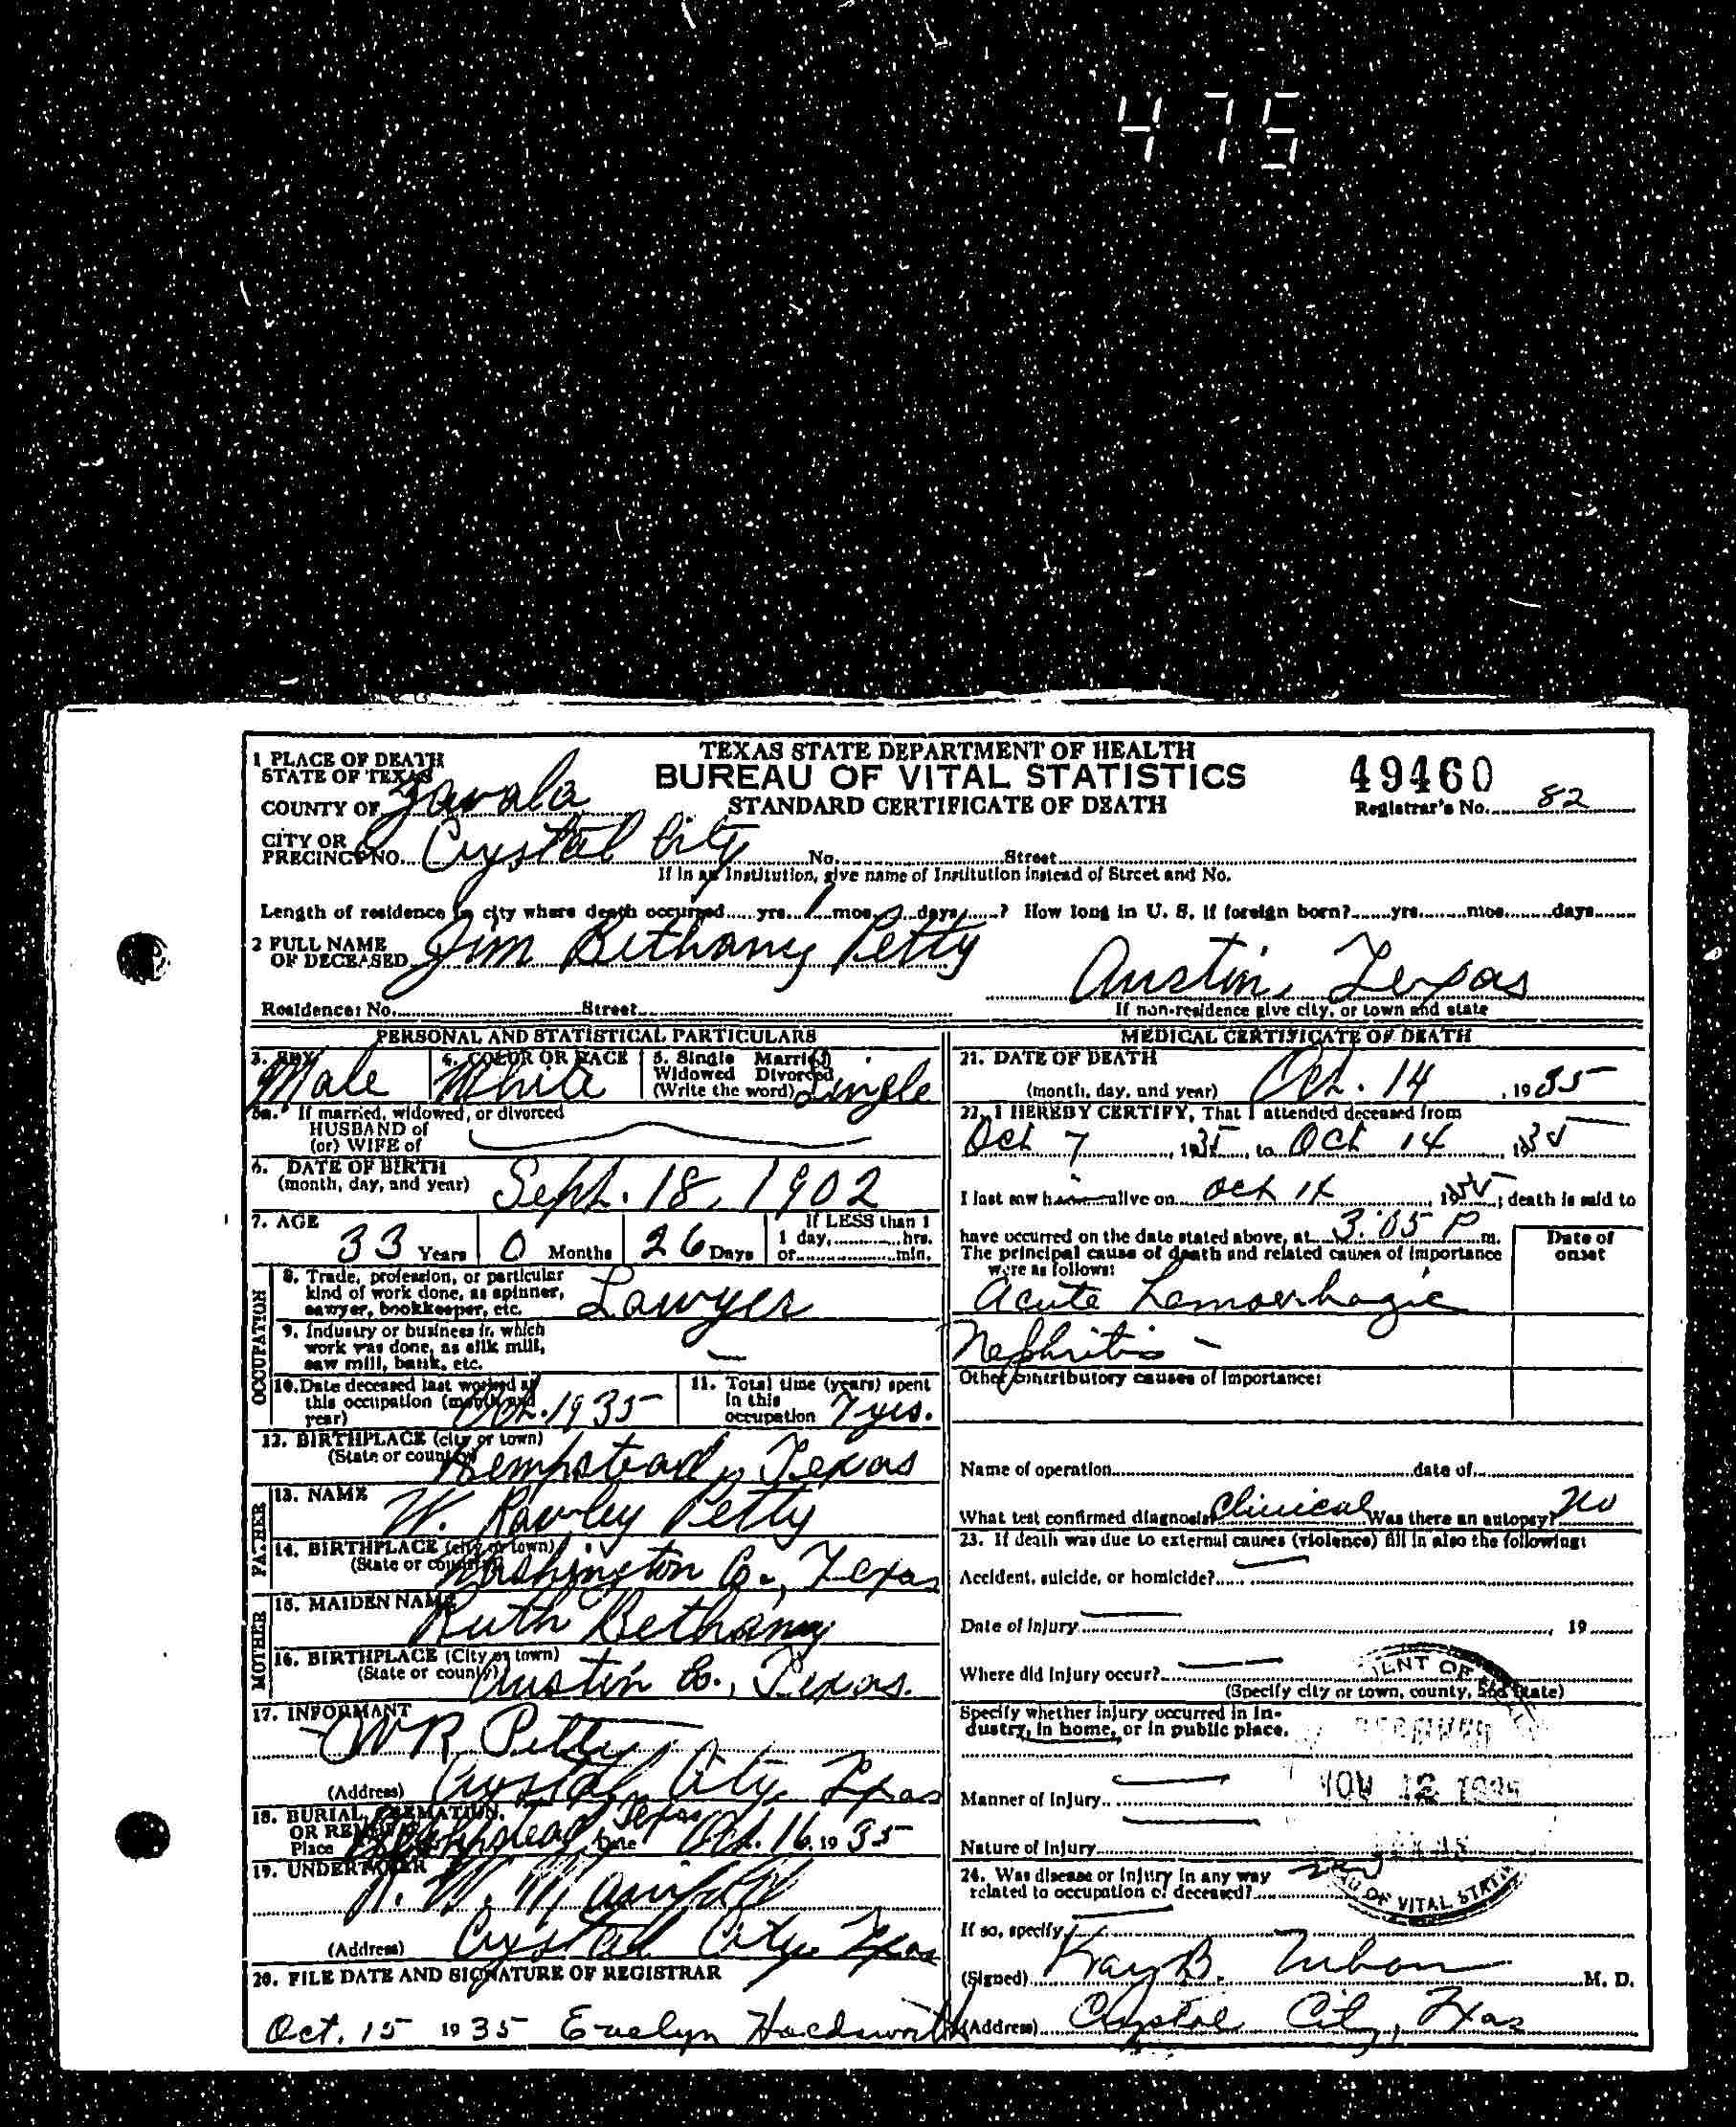 475
1 PLACE OF DEATH
STATE OF TEXAS
COUNTY OF Zavala
CITY OR
PRECINCT NO. Crystal City No. Street
If in an Institution, give name of Institution instead of Street and No.
TEXAS STATE DEPARTMENT OF HEALTH
BUREAU OF VITAL STATISTICS
STANDARD CERTIFICATE OF DEATH
49460
Registrar's No. 82
Length of residence in city where death occurred yrs. 1 mos. days ? How long in U. S. if foreign born? yrs. mos. days
2 FULL NAME
OF DECEASED Jim Bethany Petty
Residence: No. Street
Austin, Texas
If non-residence give city, or town and state
PERSONAL AND STATISTICAL PARTICULARS
3. SEX Male
4. COLOR OR RACE White
5. Single Married
Widowed Divorced
(Write the word) Single
5a. If married, widowed, or divorced
HUSBAND of
(or) WIFE of
6. DATE OF BIRTH
(month, day, and year) Sept. 18, 1902
7. AGE
33 Years 0 Months 26 Days
If LESS than 1
1 day, hrs.
or min.
OCCUPATION
8. Trade, profession, or particular
kind of work done, as spinner,
sawyer, bookkeeper, etc. Lawyer
9. Industry or business in which
work was done, as silk mill,
saw mill, bank, etc. —
10. Date deceased last worked at
this occupation (month and
year) Oct. 1935
11. Total time (years) spent
in this
occupation 7 yrs.
12. BIRTHPLACE (city or town)
(State or county) Hempstead, Texas
FATHER
13. NAME W. Rawley Petty
14. BIRTHPLACE (city or town)
(State or county) Washington Co., Texas
MOTHER
15. MAIDEN NAME Ruth Bethany
16. BIRTHPLACE (City or town)
(State or county) Austin Co., Texas.
17. INFORMANT
W R Petty
(Address) Crystal City Texas
18. BURIAL, CREMATION,
OR REMOVAL
Place Hempstead, Texas Date Oct. 16, 1935
19. UNDERTAKER
(Address) Crystal City Texas
20. FILE DATE AND SIGNATURE OF REGISTRAR
Oct. 15 1935 Evelyn
MEDICAL CERTIFICATE OF DEATH
21. DATE OF DEATH
(month, day, and year) Oct. 14, 1935
22. I HEREBY CERTIFY, That I attended deceased from
Oct 7, 1935, to Oct 14, 1935
I last saw him alive on Oct 14, 1935; death is said to
have occurred on the date stated above, at 3:05 P m.
The principal cause of death and related causes of importance
were as follows:
Date of
onset
Acute hemorrhagic
Nephritis –
Other contributory causes of importance:
Name of operation date of
What test confirmed diagnosis? Clinical Was there an autopsy? No
23. If death was due to external causes (violence) fill in also the following:
Accident, suicide, or homicide?
Date of injury 19
Where did injury occur?
(Specify city or town, county, and State)
Specify whether injury occurred in in-
dustry, in home, or in public place.
Manner of Injury
NOV 12 1935
Nature of Injury
24. Was disease or injury in any way
related to occupation of deceased?
OF VITAL STATI
If so, specify
(Signed) M. D.
(Address) Crystal City, Texas